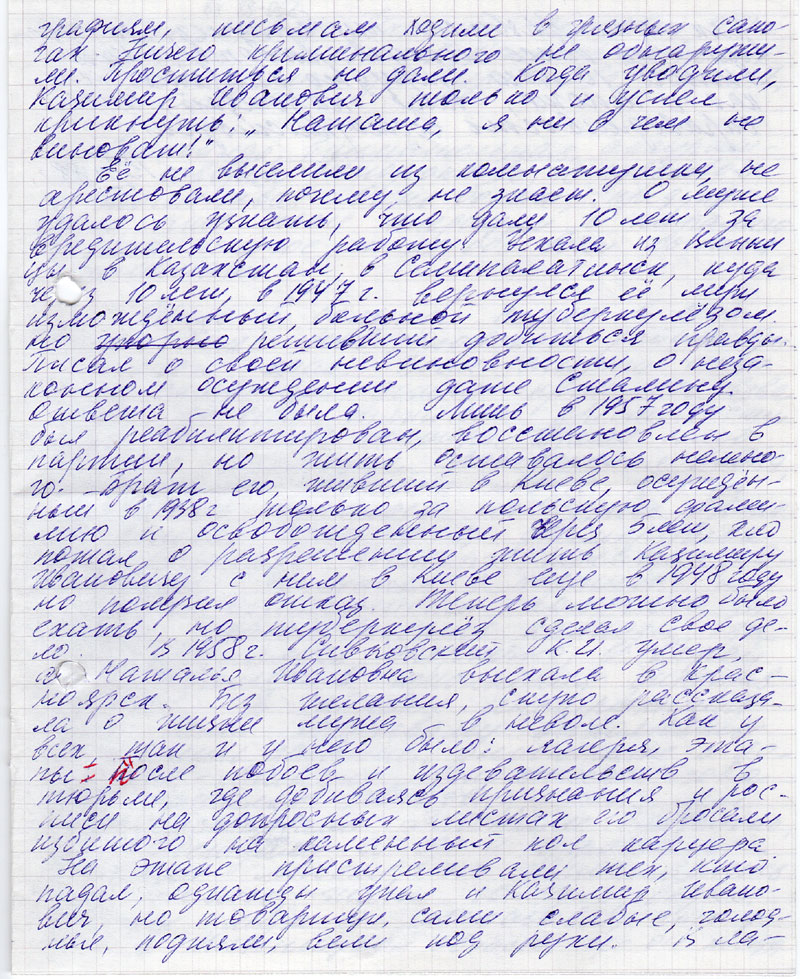 графиям, письмам ходили в грязных сапо-
гах. Ничего криминального не обнаружи-
ли. Проститься не дали. Когда уводили,
Казимир Иванович только и успел
крикнуть: „Наташа, я ни в чем не
виноват!"
Её не выселили из комнатушки, не
арестовали, почему, не знает. О муже
удалось узнать, что дали 10 лет за
вредительскую работу. Уехала из Винни
цы в Казахстан, в Семипалатинск, куда
через 10 лет, в 1947 г. вернулся её муж
измождённый больной туберкулёзом.
но решивший добиться правды.
Писал о своей невиновности, о неза-
конном осуждении даже Сталину.
Ответа не было. Лишь в 1957 году
был реабилитирован, восстановлен в
партии, но жить оставалось немно-
го. Брат его, живший в Киеве, осуждён-
ный в 1938 г только за польскую фами-
лию и освобожденный через 5 лет, хло
потал о разрешении жить Казимиру
Ивановичу с ним в Киеве еще в 1948 году
но получил отказ. Теперь можно было
ехать, но туберкулёз сделал свое де-
ло. В 1958 г. К.И. умер,
а Наталья Ивановна выехала в Крас-
ноярск. Без желания, скупо рассказа-
ла о жизни мужа в неволе. Как у
всех, так и у него было: лагеря, эта-
пы - после побоев и издевательств в
тюрьме, где добиваясь признания и рос-
писи на допросных листах его бросали
избитого на каменный пол карцера
На этапе пристреливали тех, кто
падал, однажды упал и Казимир Ивано-
вич, но товарищи, сами слабые, голод-
ные, подняли, вели под руки. В ла-